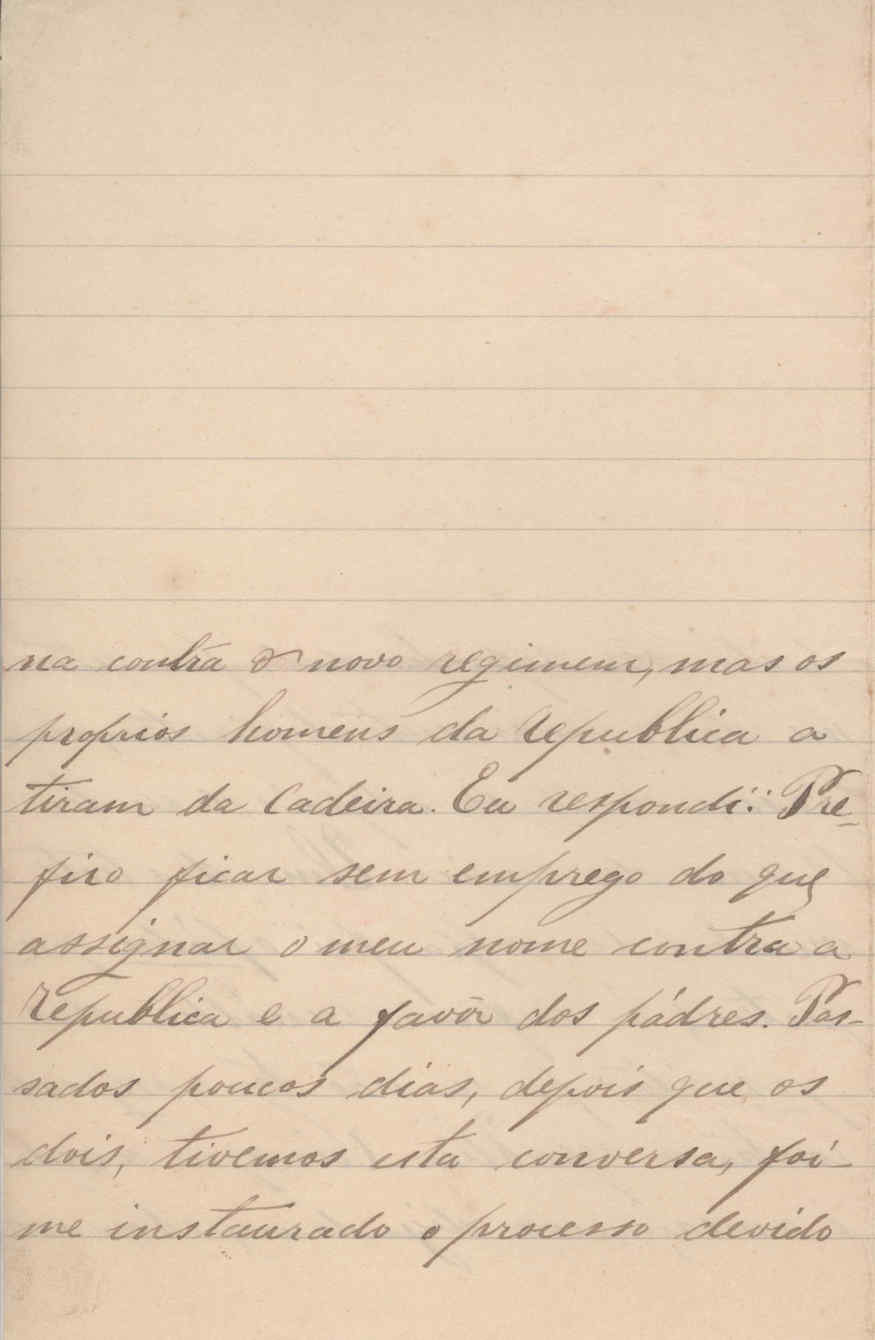 na contra o novo regimem, mas os
proprios homens da republica a
tiram da Cadeira. Eu respondi: Pre-
firo ficar sem emprego do que
assignar o meu nome contra a
republica e a favôr dos pádres. Pas-
sados poucos dias, depois que os
dois, tivemos esta conversa, foi-
me instaurado o processo devido